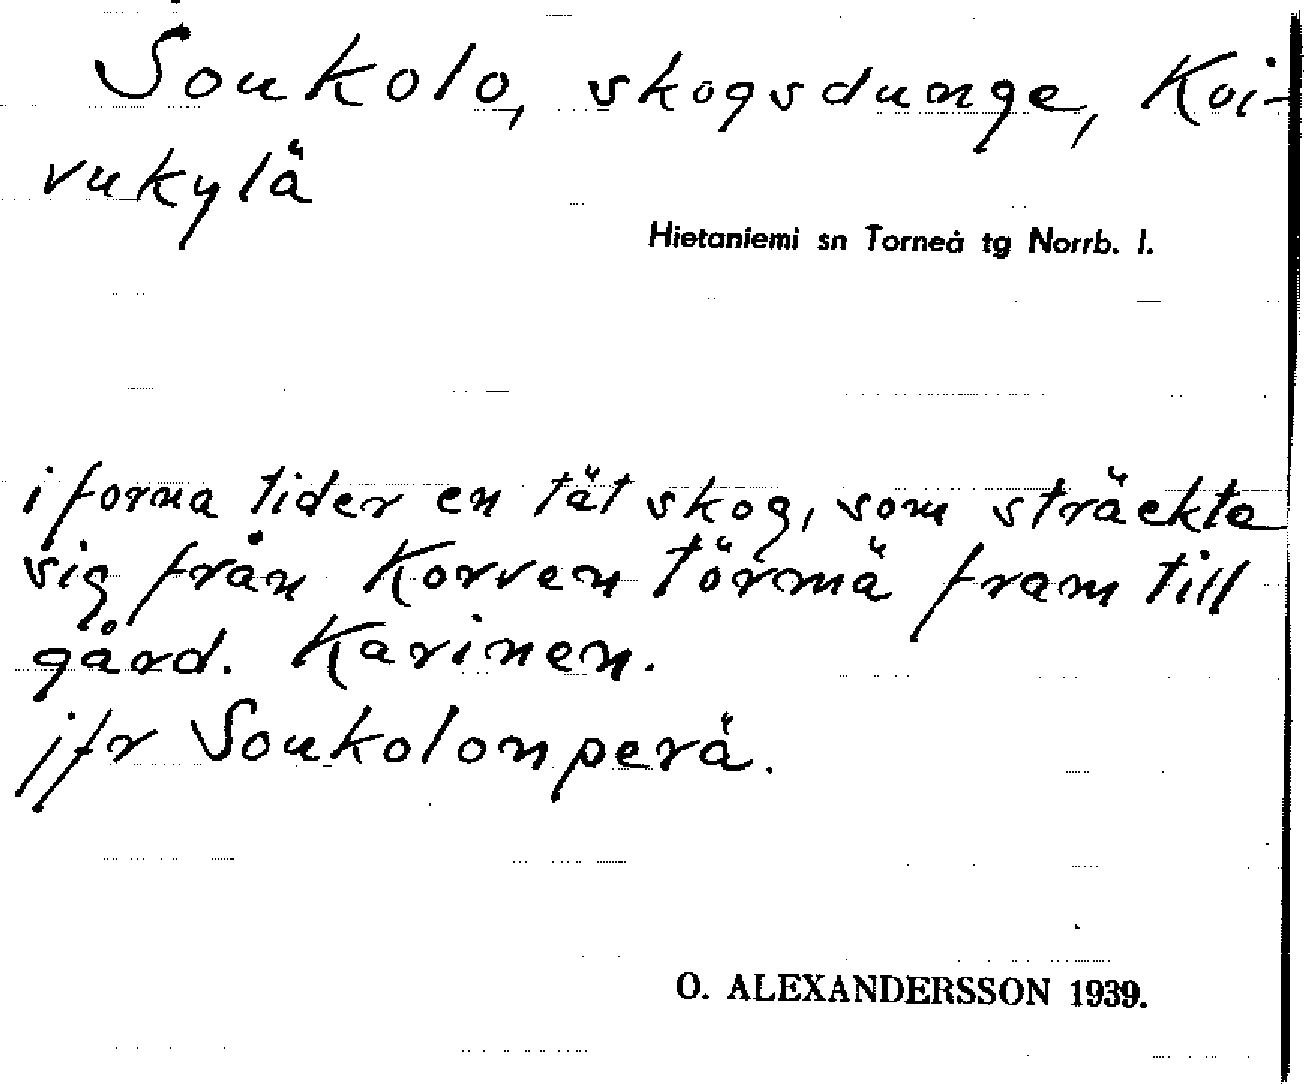 Soukolo, skogsdunge, Koi-
vukylä
Hietaniemi sn Torneå tg Norrb. l.
i forna tider en tät skog, som sträckte
sig från Korven törmä fram till
gård. Karinen.
jfr Soukolonperä.
O. ALEXANDERSSON 1939.